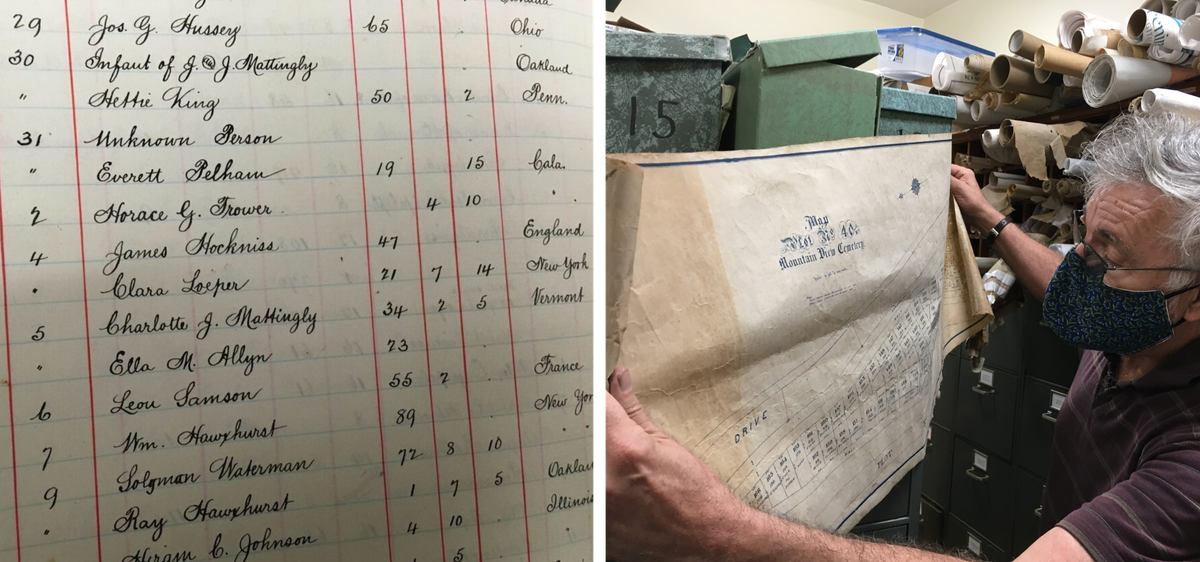 29 Jos. G. Hussey 65 Ohio
30 Infant of J. & J. Mattingly Oakland
" Hettie King 50 2 Penn.
31 Unknown Person
" Everett Pelham 19 15 Cala.
2 Horace G. Trower 4 10 "
4 James Hockniss 47 England
" Clara Loeper 21 7 14 New York
5 Charlotte J. Mattingly 34 2 5 Vermont
" Ella M. Allyn 23
6 Leon Samson 55 2 France
7 Wm. Hawxhurst 89 New Yor
9 Solomon Waterman 72 8 10
" Ray Hawxhurst 1 7 5 Oaklan
Hiram C. Johnson 4 10 Illinois
5
15
Map
Plot No 40
Mountain View Cemetery
DRIVE